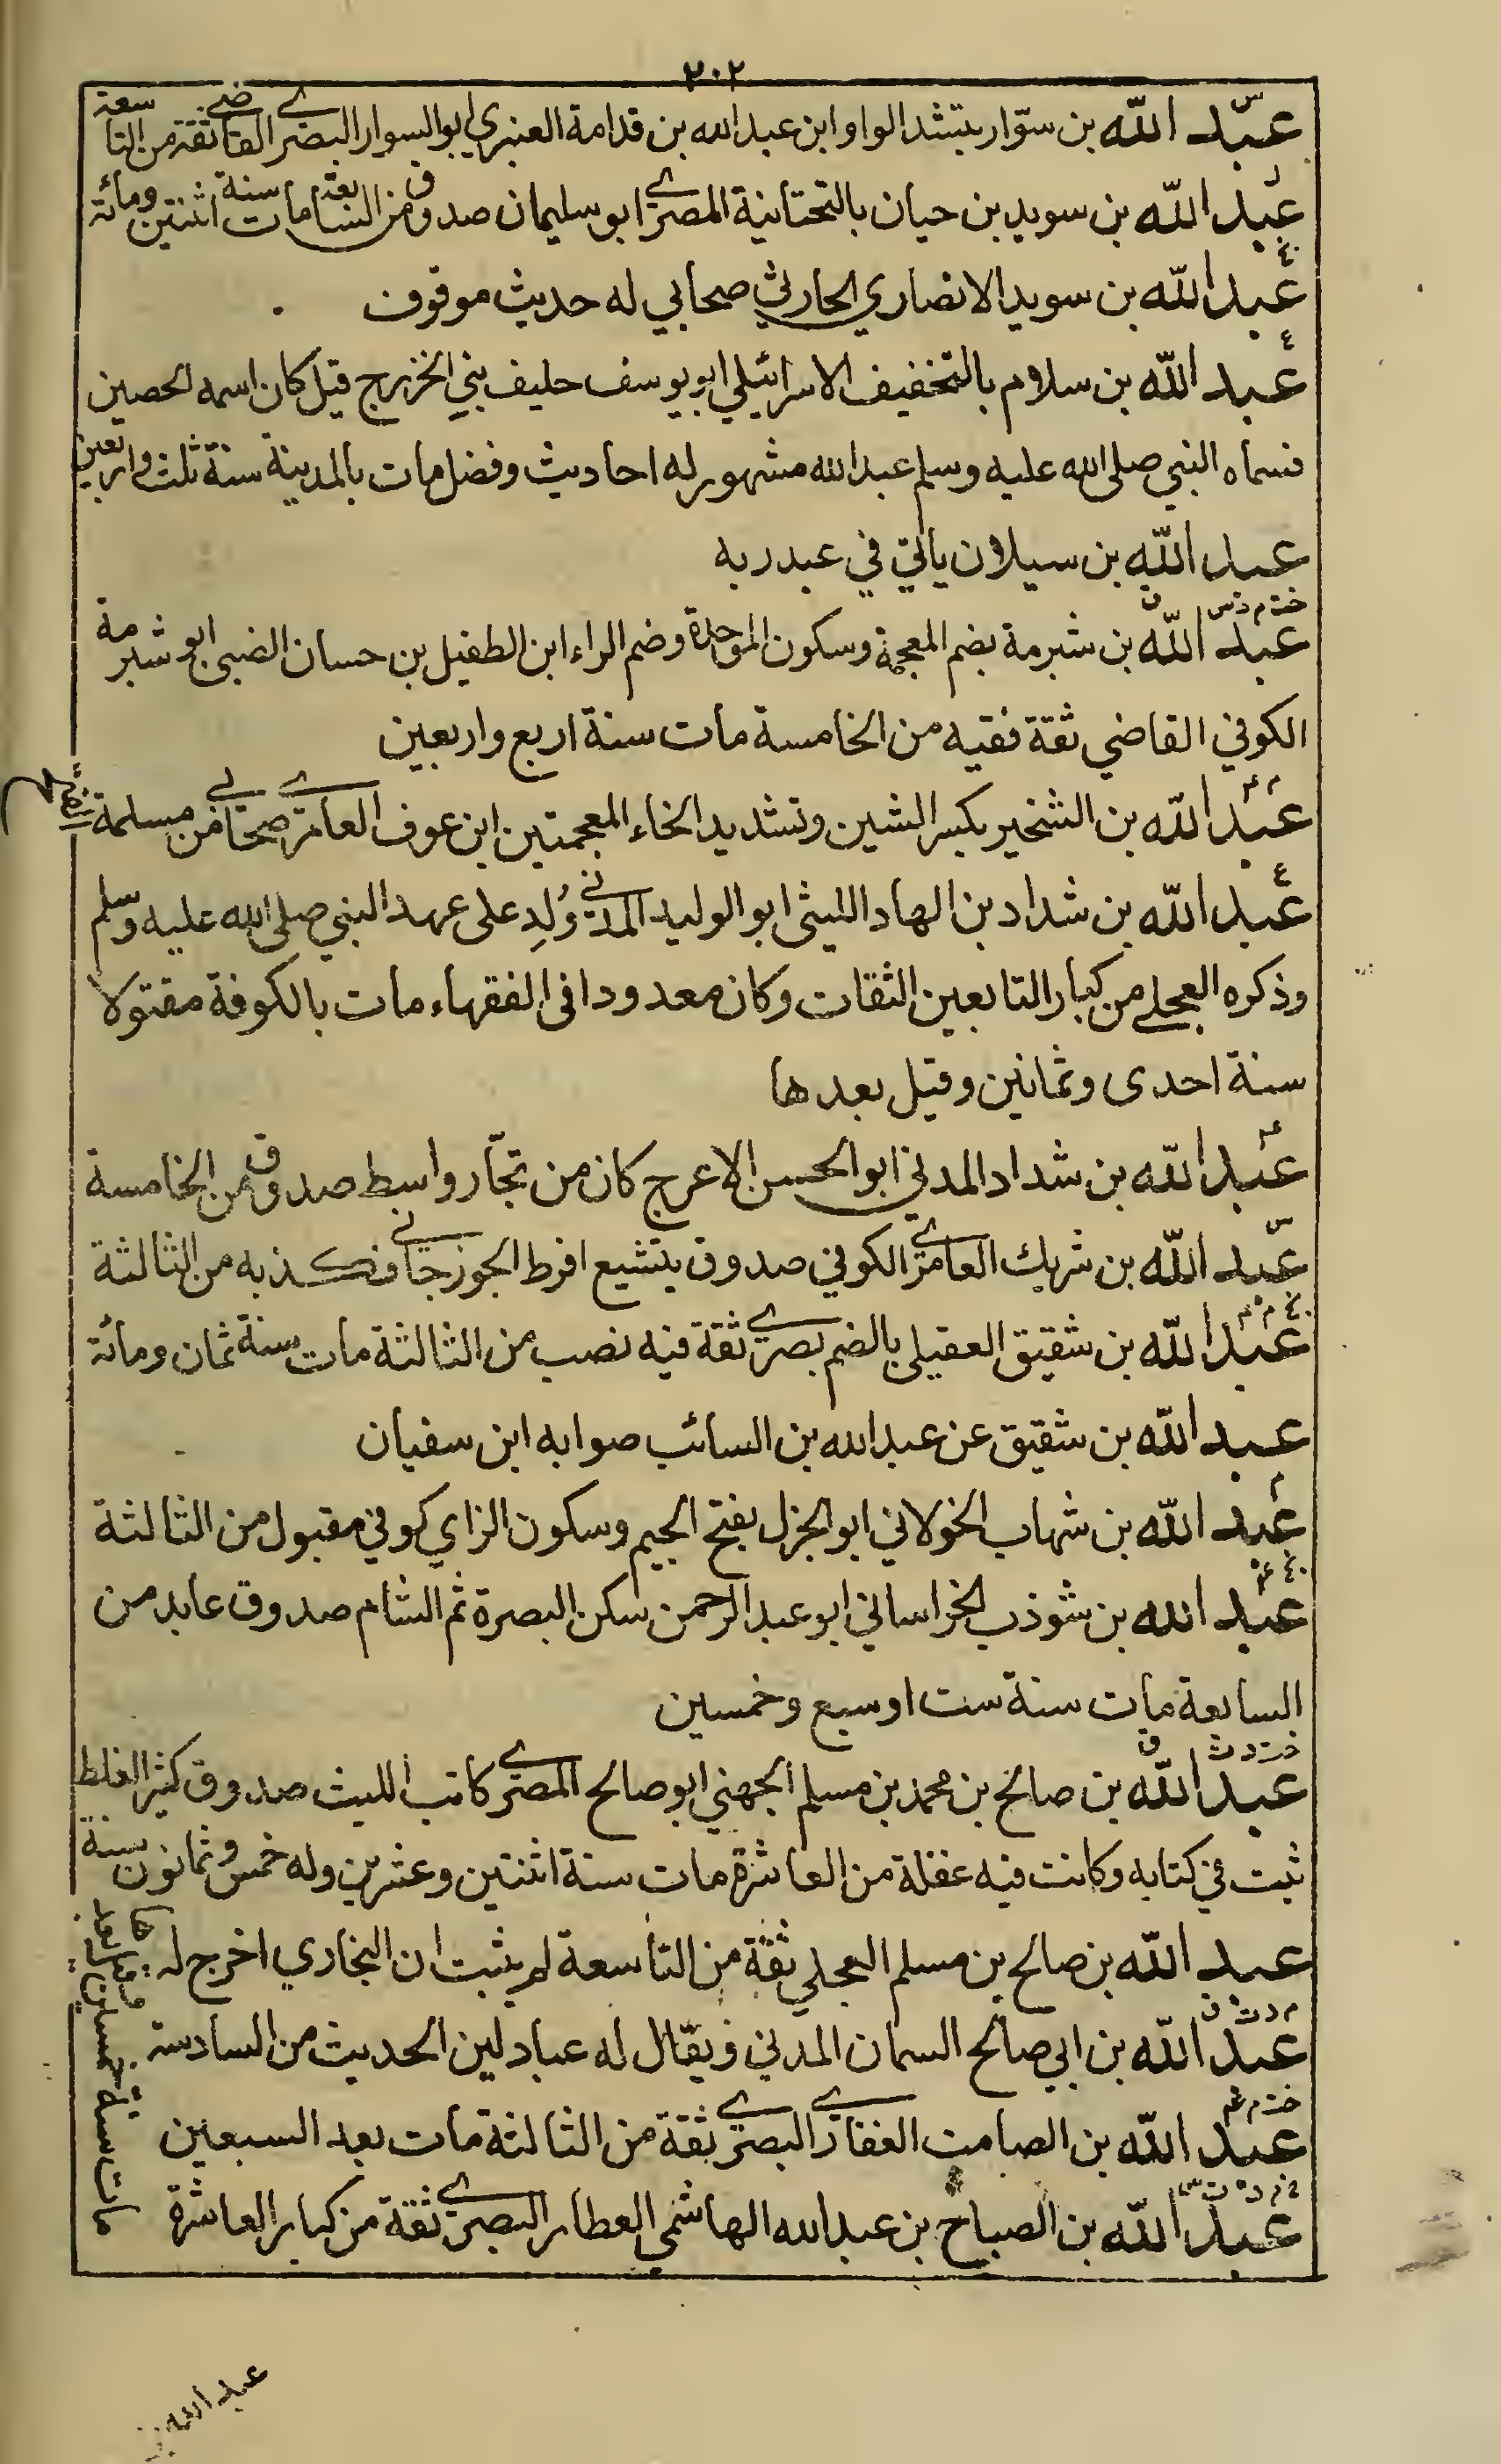 ٢٠٢
س
عبد الله بن سوّار بتشد الواو ابن عبد الله بن قدامة العنبري ابو السوار البصري القاضي ثقة من التاسعة
عبد الله بن سويد بن حيان بالتحتانية المصري ابو سليمان صدوق من السابعة مات سنة اثنتين ومائة
عبد الله بن سويد الانصاري الحارثي صحابي له حديث موقوف
٤
عبد الله بن سلام بالتخفيف الاسرائيلي ابو يوسف حليف بني الخزرج قيل كان اسمه الحصين
فسماه النبي صلى الله عليه وسلم عبد الله مشهور له احاديث وفضل مات بالمدينة سنة ثلث واربعين
عبد الله بن سيلان ياتي في عبد ربه
عبد الله بن شبرمة بضم المعجمة وسكون الموحدة وضم الراء ابن الطفيل بن حسان الضبى ابو شبرمة
الكوفي القاضي ثقة فقيه من الخامسة مات سنة اربع واربعين
م عم
عبد الله بن الشخير بكسر الشين وتشديد الخاء المعجمتين ابن عوف العامري صحابي من مسلمة الفتح
ع
عبد الله بن شداد بن الهاد الليثى ابو الوليد المدني وُلِد على عهد النبي صلى الله عليه وسلم
وذكره العجلے من كبار التابعين الثقات وكان معدودا فى الفقهاء مات بالكوفة مقتولا
سنة احدى وثمانين وقيل بعدها
عم
عبد الله بن شداد المدني ابو الحسن الاعرج كان من تجّار واسط صدوق من الخامسة
س
عبد الله بن شريك العامري الكوفي صدوق يتشيع افرط الجوزجاني فكذبه من الثالثة
عبد الله بن شقيق العقيلى بالضم بصري ثقة فيه نصب من الثالثة مات سنة ثمان ومائة
عبد الله بن شقيق عن عبد الله بن السائب صوابه ابن سفيان
م
عبد الله بن شهاب الخولاني ابو الجزل بفتح الجيم وسكون الزاي كوفي مقبول من الثالثة
عبد الله بن شوذب الخراساني ابو عبد الرحمن سكن البصرة ثم الشام صدوق عابد من
السابعة مات سنة ست او سبع وخمسين
خت د ت ق
عبد الله بن صالح بن محمد بن مسلم الجهني ابو صالح المصري كاتب الليث صدوق كثير الغلط
ثبت في كتابه وكانت فيه غفلة من العاشرة مات سنة اثنتين وعشرين وله خمس وثمانون سنة
عبد الله بن صالح بن مسلم العجلي ثقة من التاسعة لم يثبت ان البخاري اخرج له
م د ت ق
عبد الله بن ابي صالح السمان المدني ويقال له عباد لين الحديث من السادسة
خت م عم
عبد الله بن الصامت الغفاري البصري ثقة من الثالثة مات بعد السبعين
خ م د ت س
عبد الله بن الصباح بن عبد الله الهاشمي العطار البصري ثقة من كبار العاشرة
مات سنة خمسين وقيل بعدها
عبد الله بن